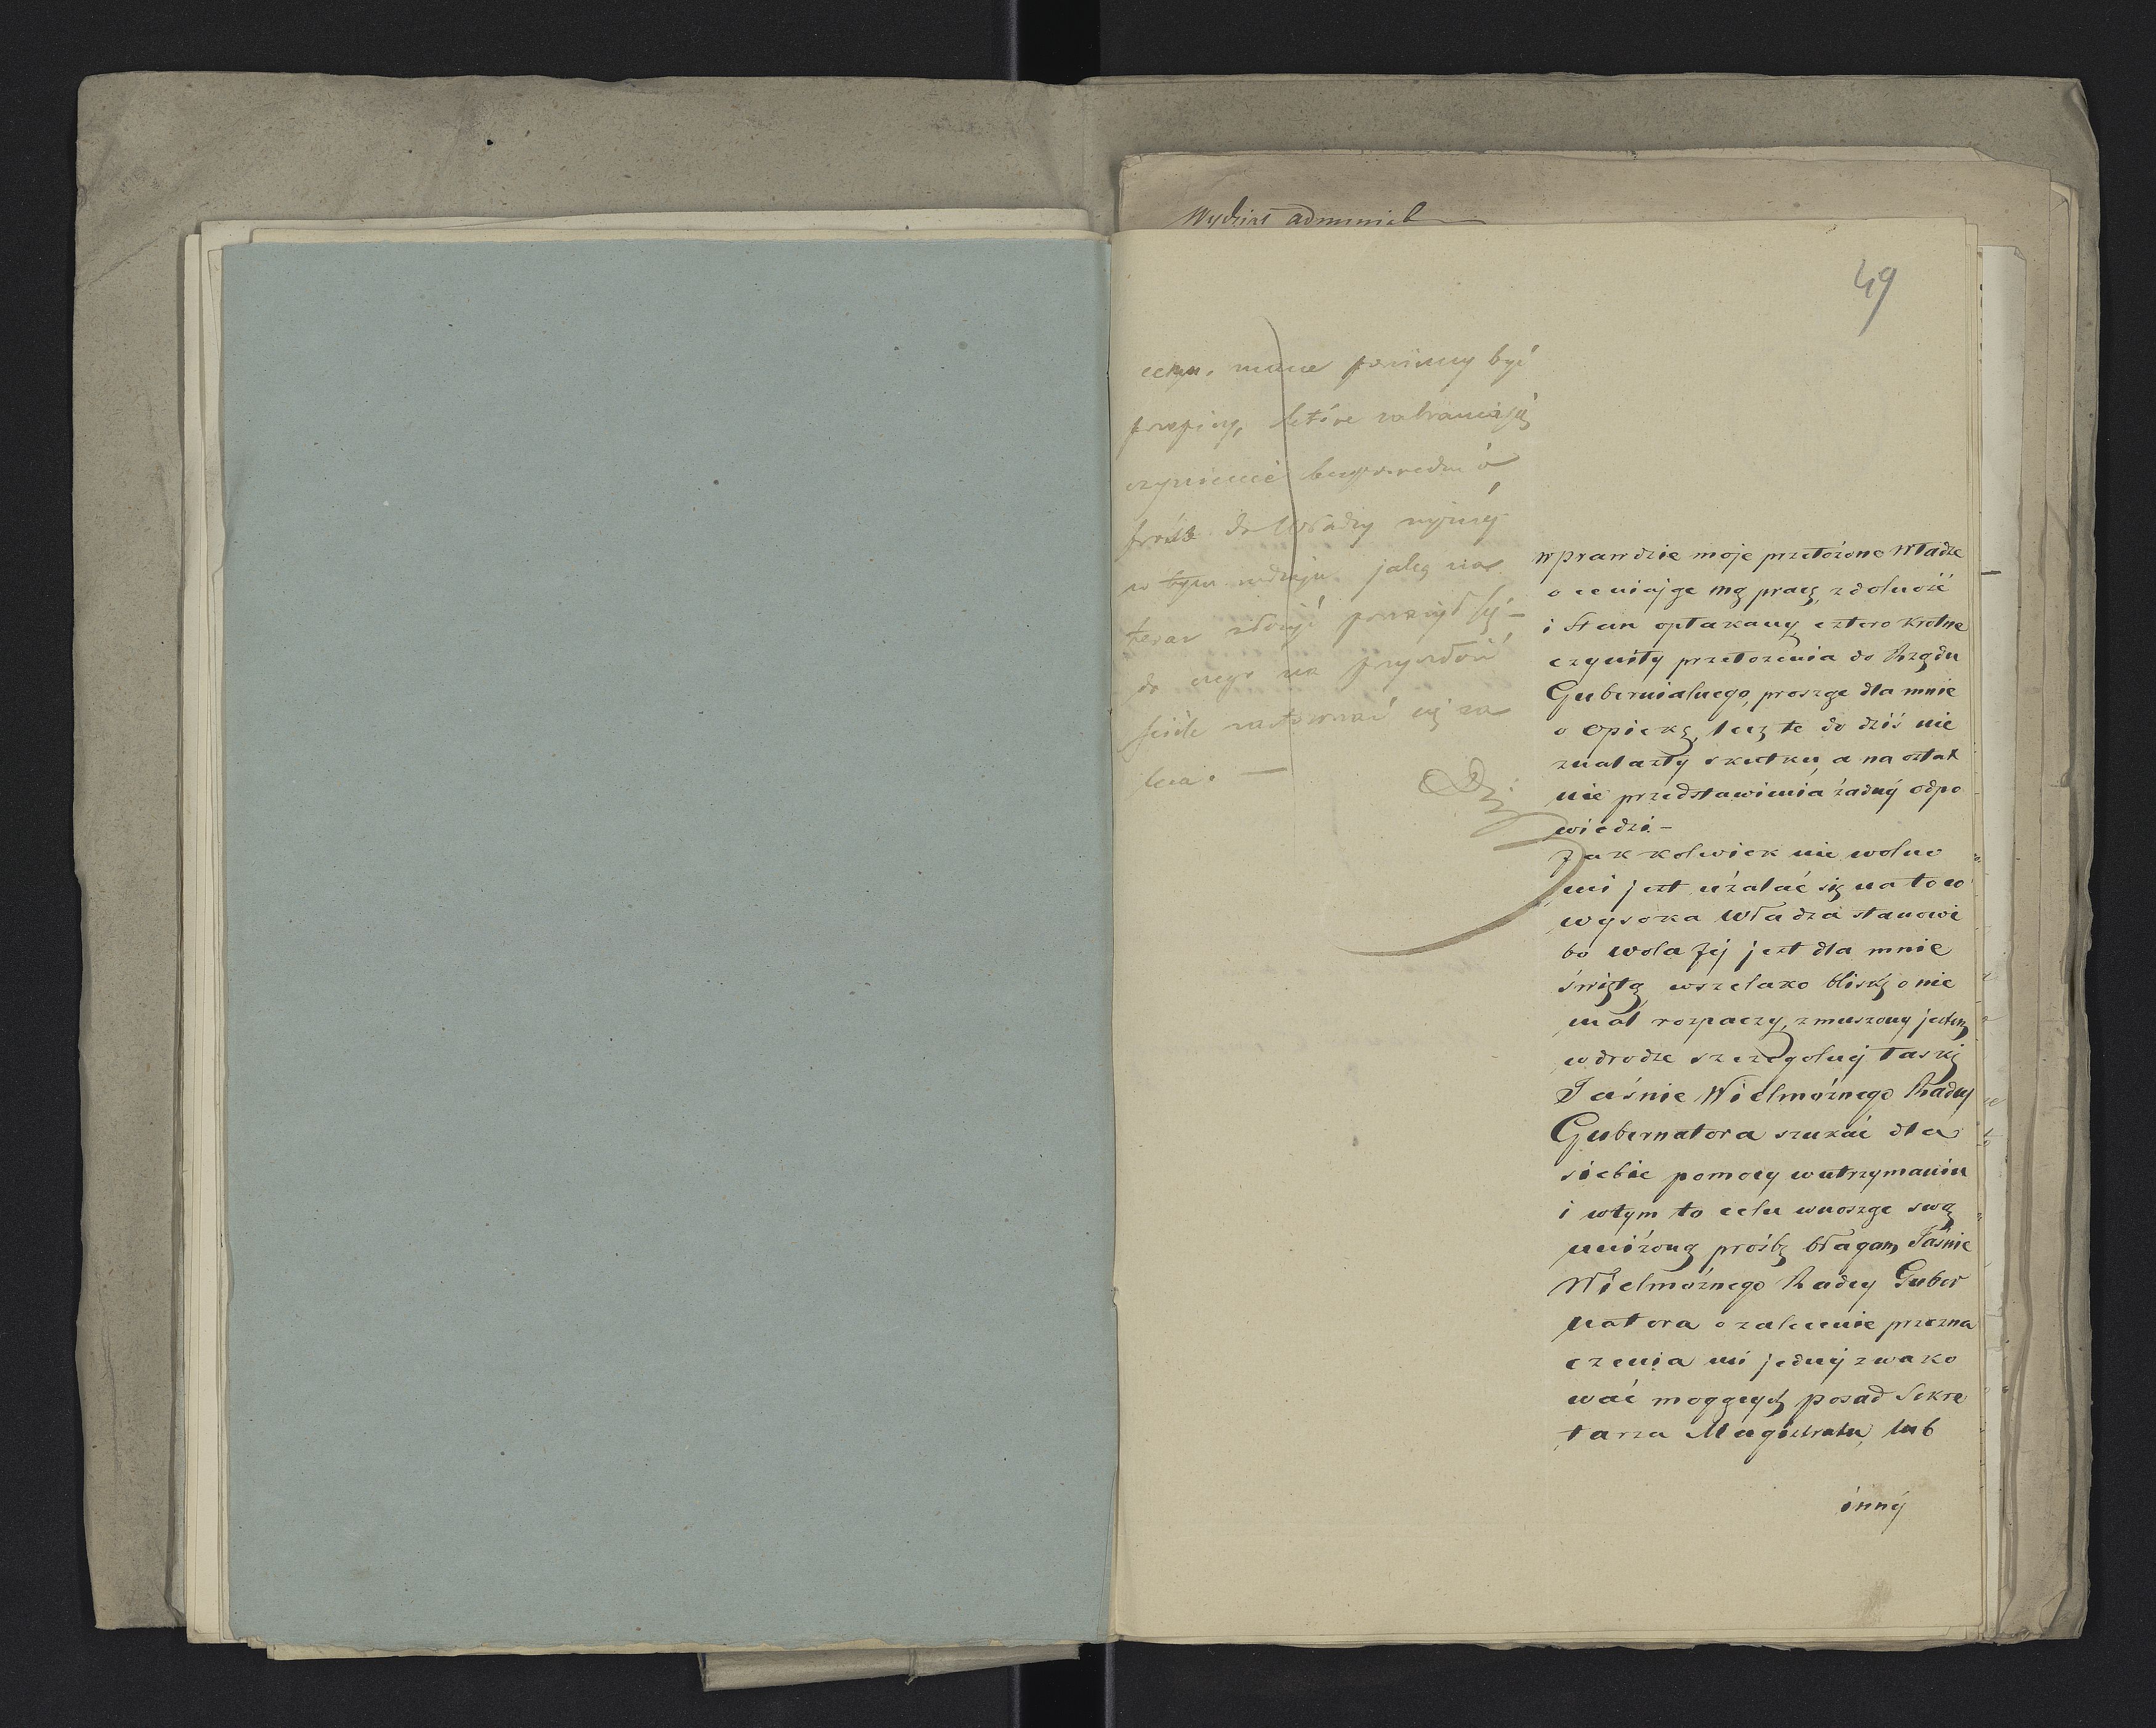 Wydział administ
49
mane powinny być
przepisy, które zabraniają
czynienie bezpośrednio
próśb do Władzy wyższéj
w tym rodzaju jaką na
teraz
do czego na przyszłość
ściśle zastosować się za
leca. —
wprawdzie moje przełożone Władze
oceniając mą pracę, zdolność
i Stan opłakany cztero krotne
czyniły przełożenia do Rządu
Gubernialnego, prosząc dla mnie
o opiekę, lecz te do dziś nie
znalazły skutku, a na ostat
nie przedstawienia żadnéj odpo
wiedzi. –
Jakkolwiek nie wolno
mi jest użalać się na to co
wysoka Władza stanowi
bo wola Jéj jest dla mnie
świętą, wszelako bliski o nie
mal rozpaczy, zmuszony jestem
w drodze szczególnéj łaski
Jaśnie Wielmożnego Radcy
Gubernatora szukać dla
siebie pomocy w utrzymaniu
i w tym to celu wnosząc swą
uniżoną prośbę błagam Jaśnie
Wielmożnego Radcy Guber
natora o zalecenie przezna
czenia mi jednéj z wako
wać mogących posad Sekre
tarza Magistratu, lub
innéj